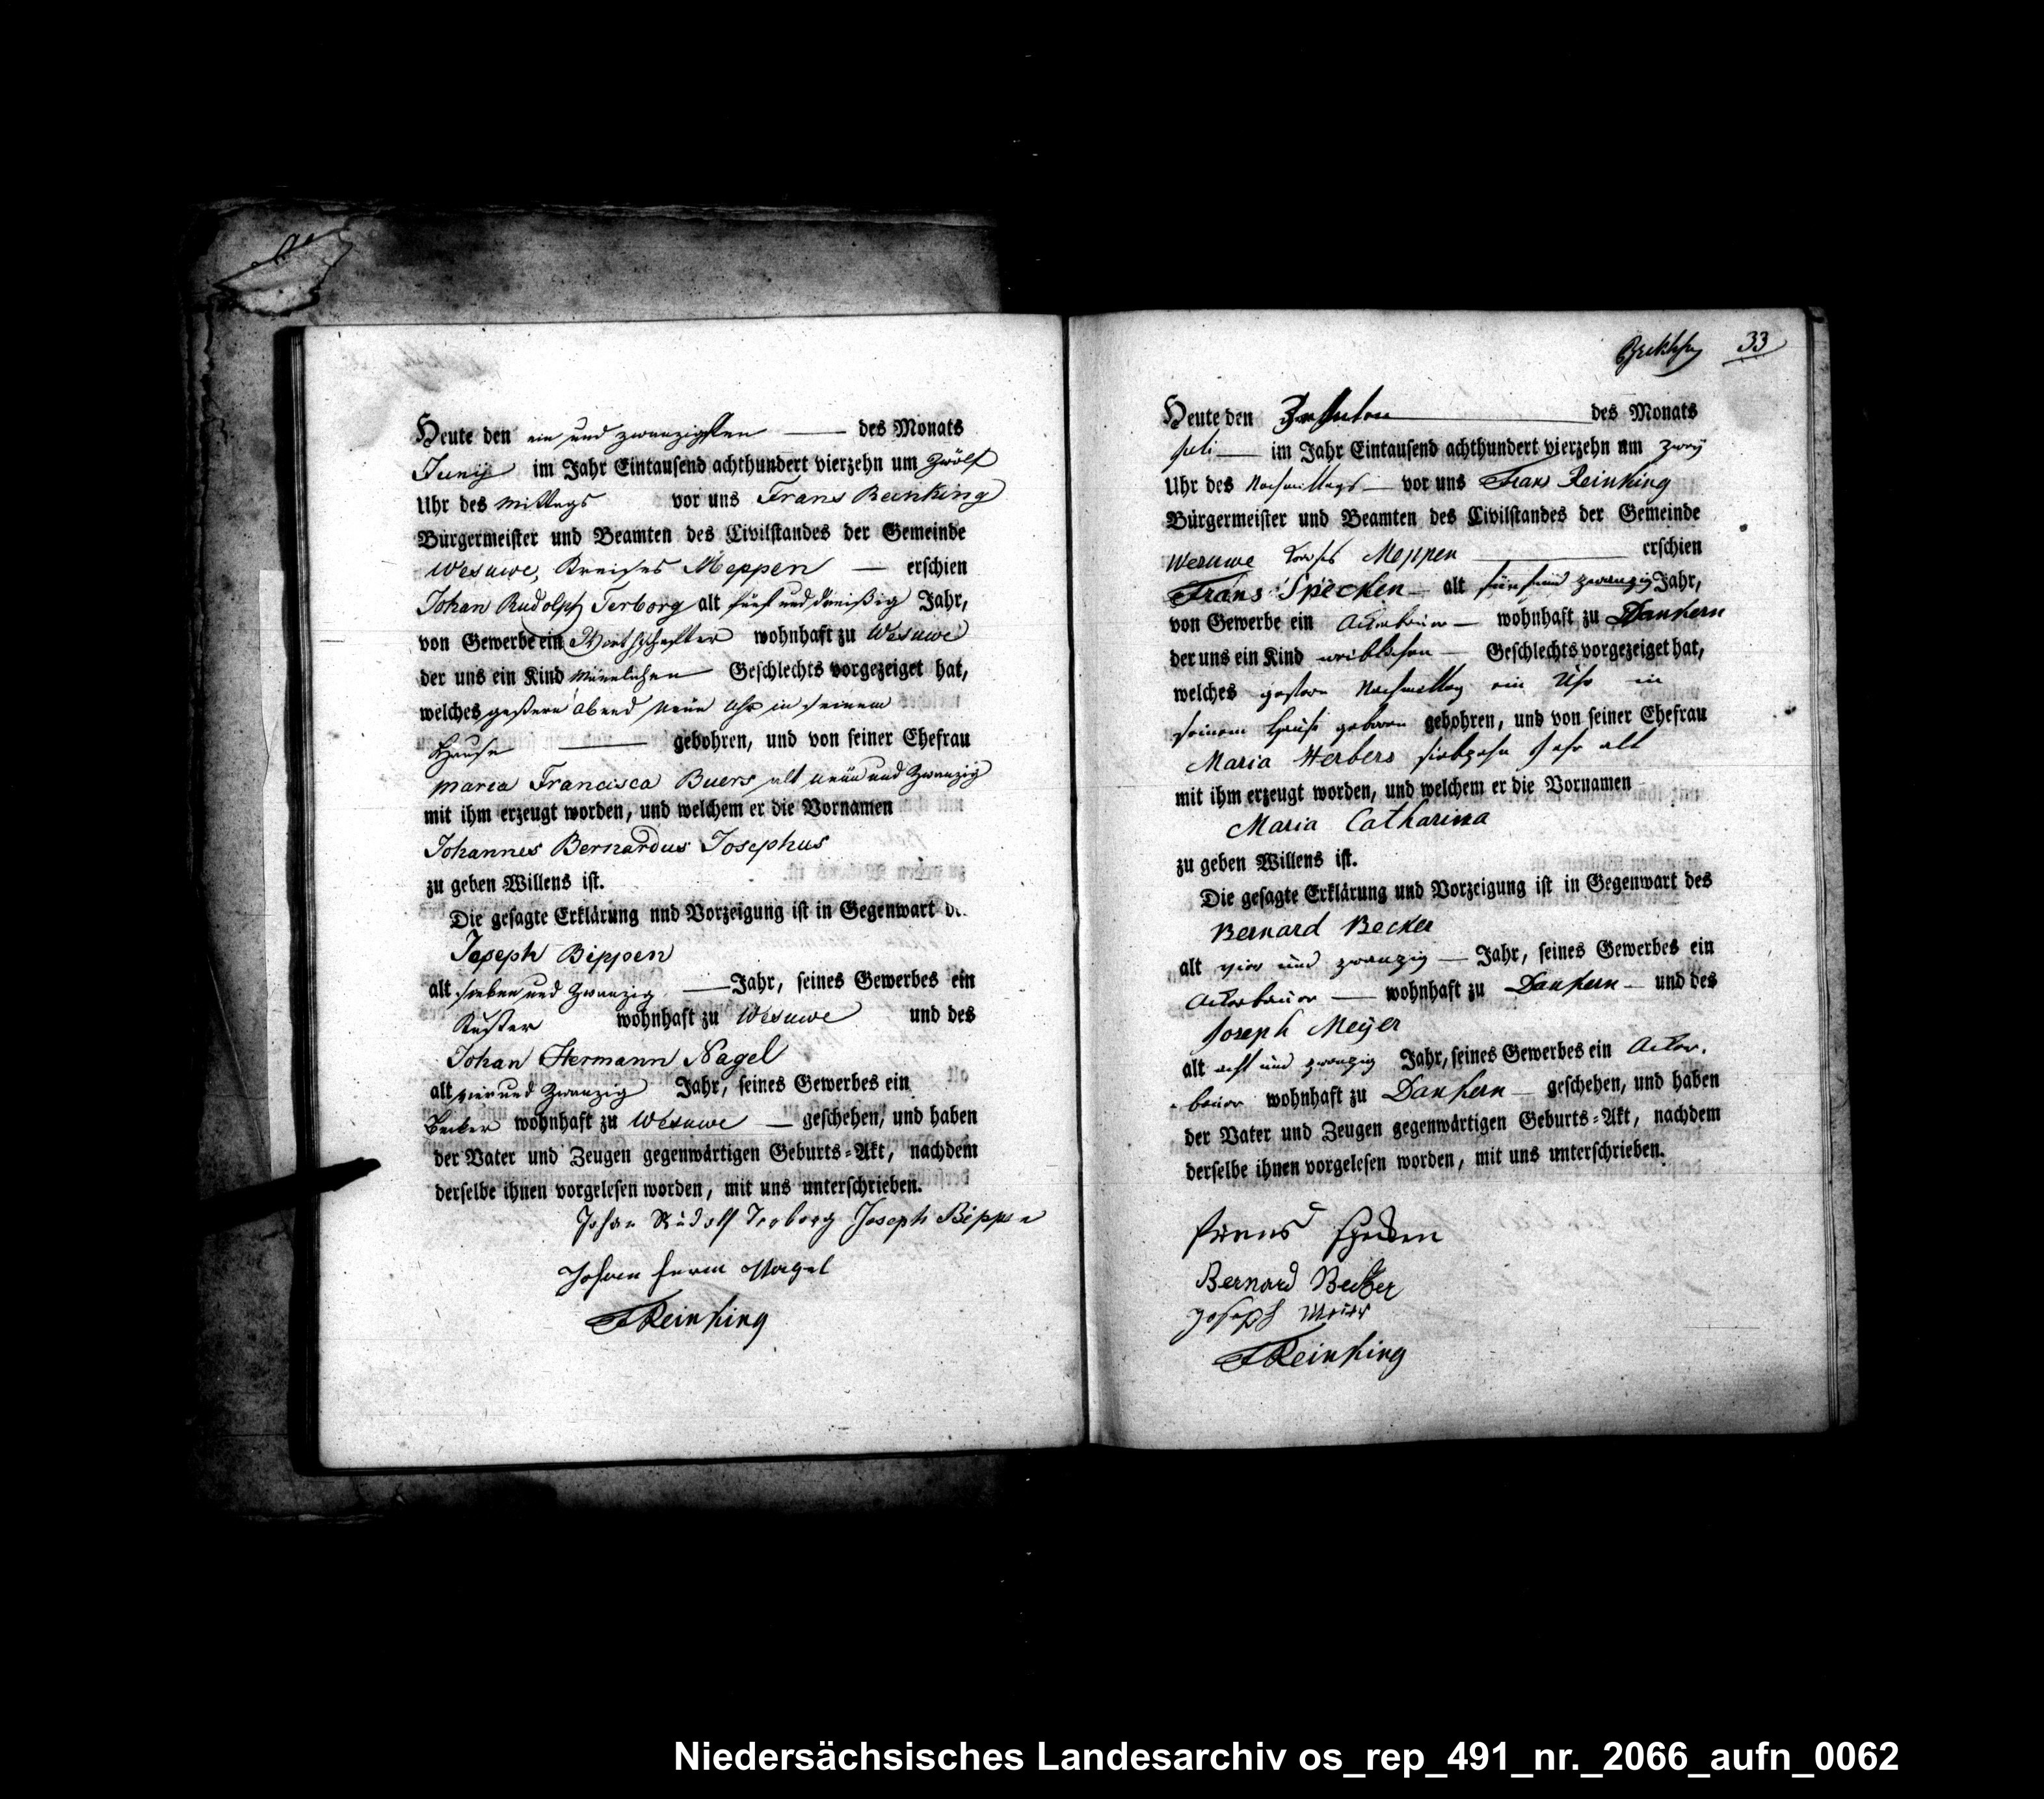 Heute den ein und zwanzigsten des Monats
Junij im Jahr Eintausend achthundert vierzehn um Zwölf
Uhr des Mittags vor uns Frans Reinking
Bürgermeister und Beamten des Civilstandes der Gemeinde
Wesuwe, Kreises Meppen erschien
Johan Rudolph Terborg alt fünf und dreißig Jahr,
von Gewerbe ein Wirthschafter wohnhaft zu Wesuwe
der uns ein Kind Mänlichen Geschlechts vorgezeiget hat,
welches gestern abend Neün Uhr in seinem
Hause gebohren, und von seiner Ehefrau
maria Francisca Buers alt neün und Zwanzig
mit ihm erzeugt worden, und welchem er die Vornamen
Johannes Bernardus Josephus
zu geben Willens ist.
Die gesagte Erklärung und Vorzeigung ist in Gegenwart de
Joseph Bippen
alt sieben und Zwanzig Jahr, seines Gewerbes ein
Küster wohnhaft zu Wesuwe und des
Johan Hermann Nagel
alt vier und Zwanzig Jahr, seines Gewerbes ein
Becker wohnhaft zu Wesuwe geschehen, und haben
der Vater und Zeugen gegenwärtigen Geburts=Akt, nachdem
derselbe ihnen vorgelesen worden, mit uns unterschrieben.
Johan Rudolf Terborg Joseph Bippen
Johan Herm Nagel
F Reinking
33
Heute den Zehnten des Monats
Juli im Jahr Eintausend achthundert vierzehn um zwey
Uhr des Nachmittags vor uns Frans Reinking
Bürgermeister und Beamten des Civilstandes der Gemeinde
Wesuwe Kreises Meppen erschien
Frans Specken alt fünf und zwanzig Jahr,
von Gewerbe ein Ackerbauer wohnhaft zu Dankern
der uns ein Kind weiblichen Geschlechts vorgezeiget hat,
welches gestern Nachmittag ein Uhr in
seinem Hause geboren gebohren, und von seiner Ehefrau
Maria Herbers siebzehn Jahr alt
mit ihm erzeugt worden, und welchem er die Vornamen
Maria Catharina
zu geben Willens ist.
Die gesagte Erklärung und Vorzeigung ist in Gegenwart des
Bernard Becker
alt vier und zwanzig Jahr, seines Gewerbes ein
Ackerbauer wohnhaft zu Dankern und des
Joseph Meÿer
alt acht und zwanzig Jahr, seines Gewerbes ein Acker-
bauer wohnhaft zu Dankern geschehen, und haben
der Vater und Zeugen gegenwärtigen Geburts=Akt, nachdem
derselbe ihnen vorgelesen worden, mit uns unterschrieben.
Specken
Bernard Becker
Joseph Meier
F Reinking
Niedersächsisches Landesarchiv os_rep_491_nr._2066_aufn_0062